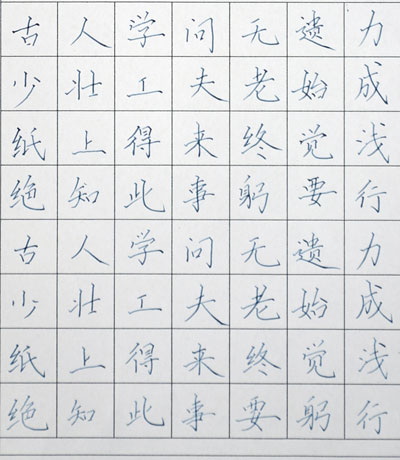 古人学问无遗力
少壮工夫老始成
纸上得来终觉浅
绝知此事躬要行
古人学问无遗力
少壮工夫老始成
纸上得来终觉浅
绝知此事要躬行